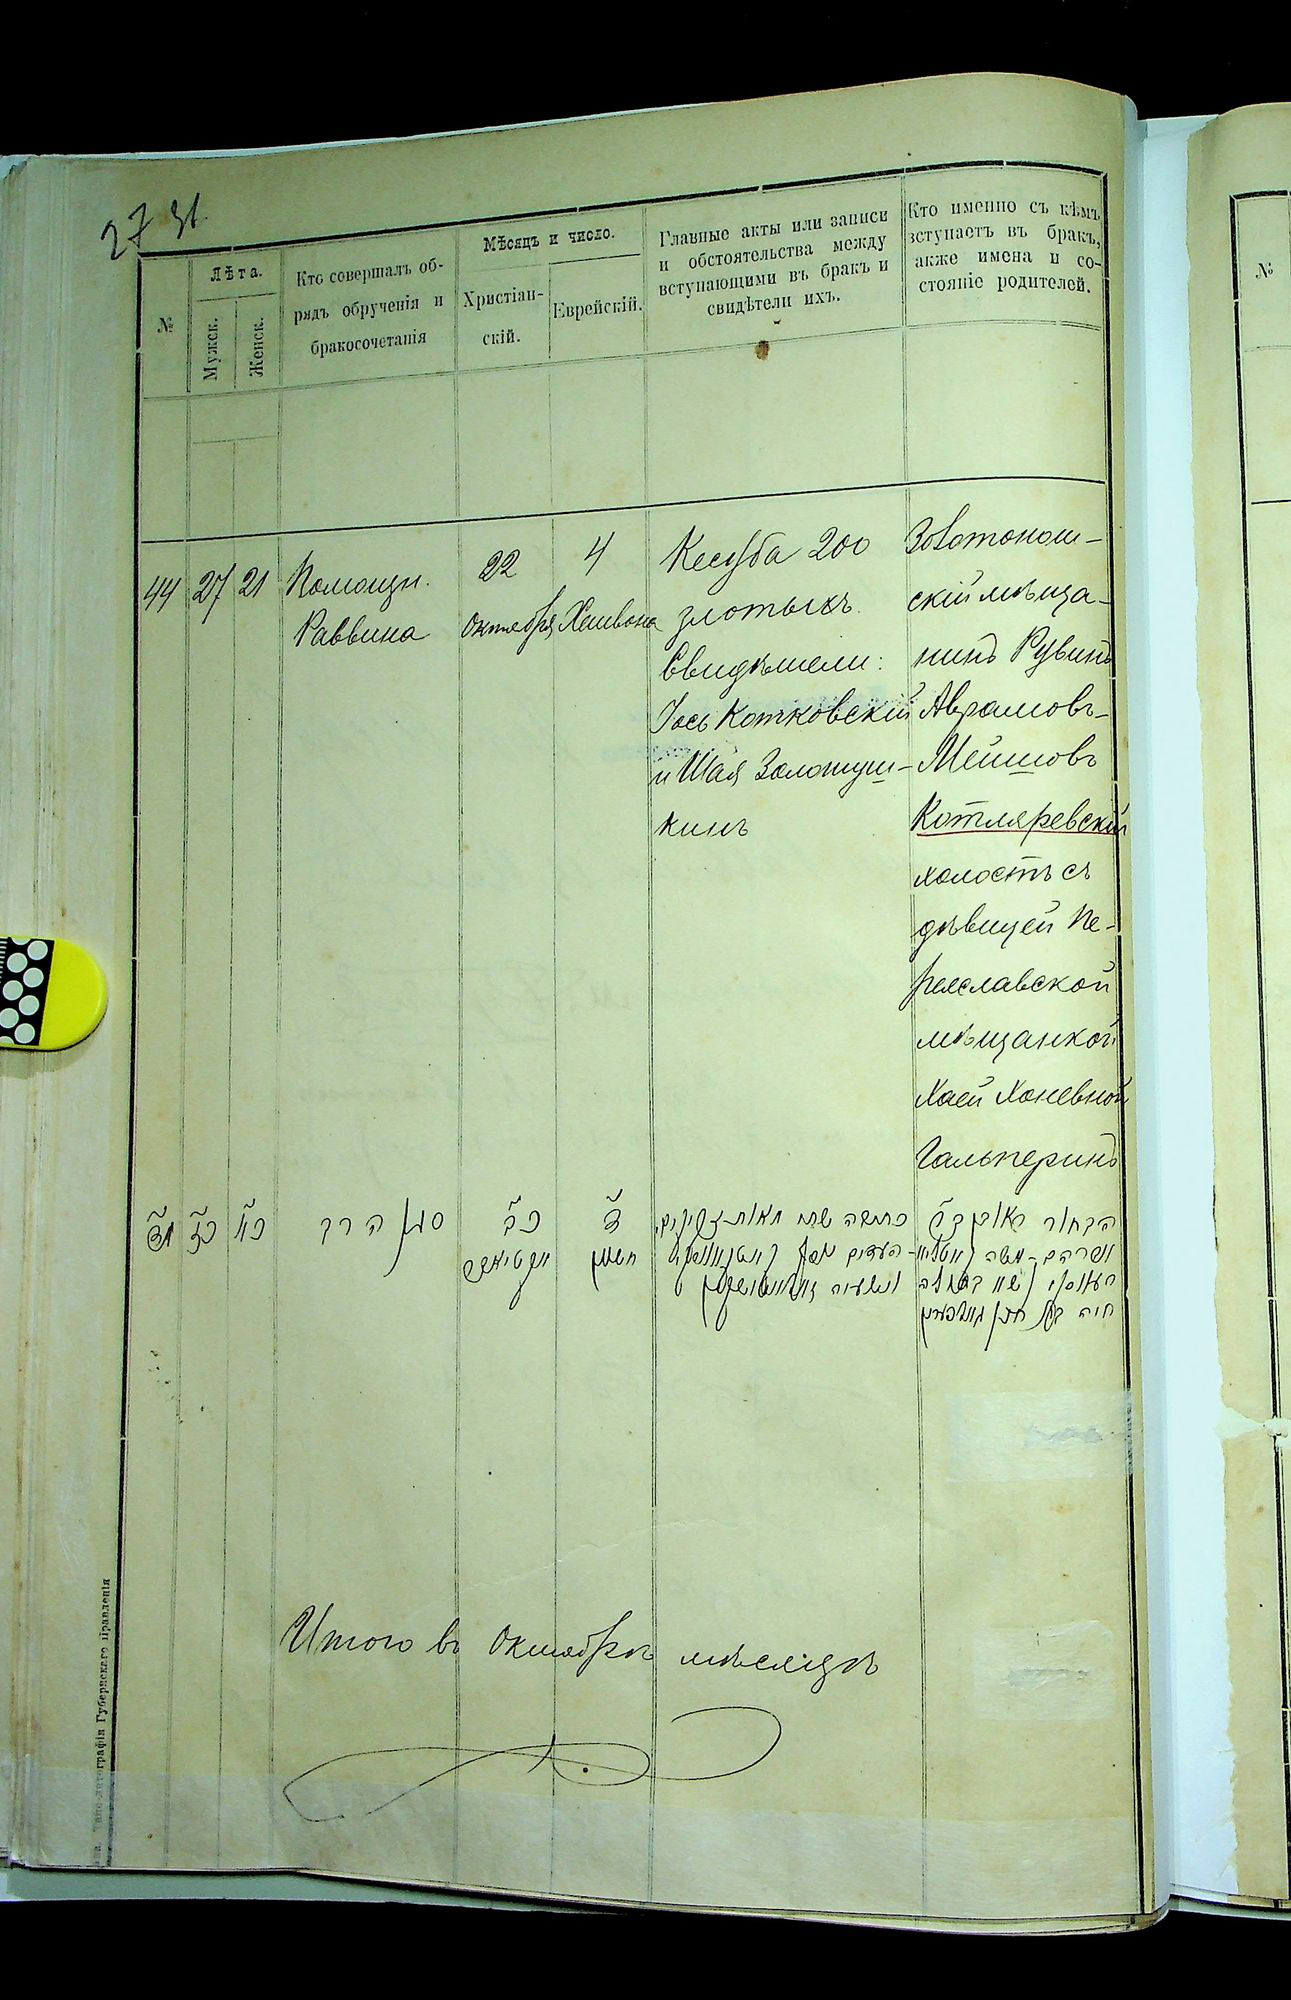 27 31.
№
Лѣта.
Мужск.
Женск.
Кто совершалъ об-
рядъ обрученія и
бракосочетанія
Мѣсяцъ и число.
Христіан-
скій.
Еврейскій.
Главные акты или записи
и обстоятельства между
вступающими въ бракъ и
свидѣтели ихъ.
Кто именно съ кѣмъ
вступаетъ въ бракъ,
акже имена и со-
стояніе родителей.
№
44
27
21
Помощн.
Раввина
22
Октября
4
Хешвона
Кесуба 200
злотыхъ.
Свидѣтели:
Іось Котковскій
и Шая Золотуш-
кинъ
Золотонош-
скій мѣща-
нинъ Рувинъ
Аврамовъ-
Мейшовъ
Котляревскій
холостъ съ
дѣвицей Пе-
реяславской
мѣщанкой
Хаей Хоневной
Гальперинъ
כ״ז
כ״א
סגן הרב
כ״ב
ד׳
חשון
הבחור ראובן ב״ר
אברהם-משה
חיה בת
העדים יוסף
וישעיה
Итого въ Октябрѣ мѣсяцѣ
Типо-Литографія Губернскаго Правленія